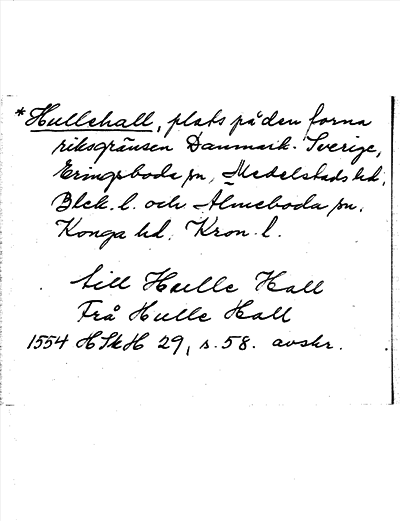 *Hullehall, plats på den forna
riksgränsen Danmark-Sverige,
Eringsboda sn, Medelstads hd,
Blek. l. och Älmeboda sn,
Konga hd. Kron. l.
till Hulle Hall
Frå Hulle Hall
1554 HSkH 29, s. 58. avskr.